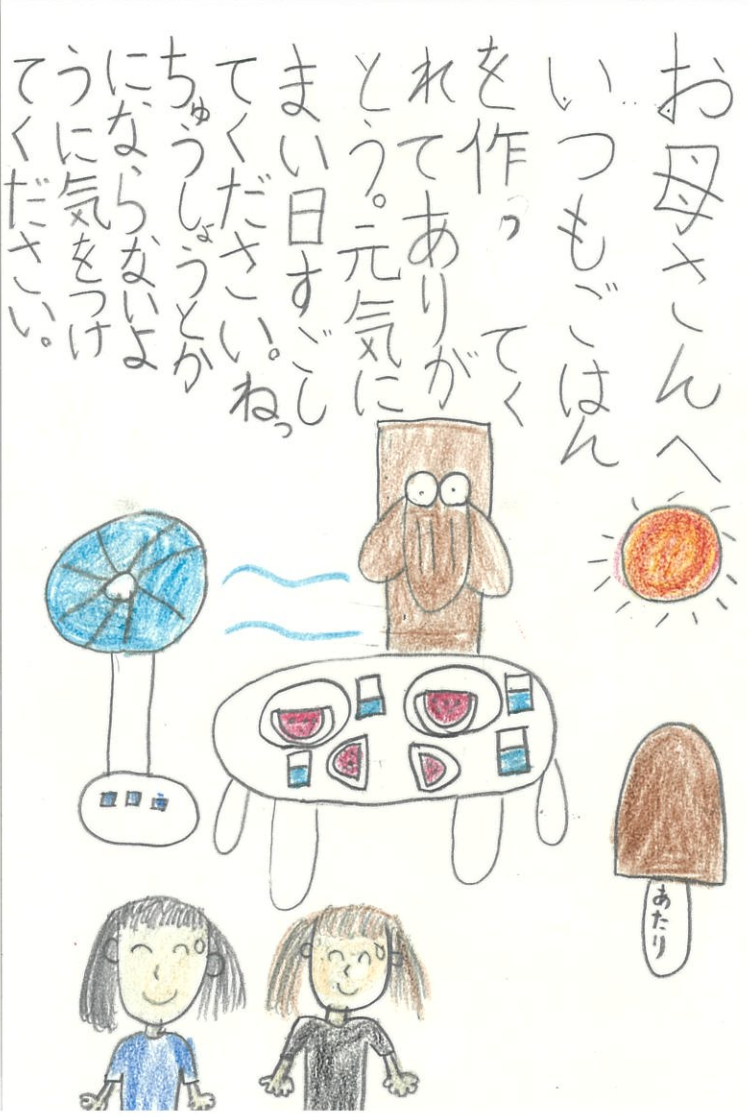 お母さんへ
いつもごはん
を作ってく
れてありが
とう。元気に
まい日すごし
てください。ねっ
ちゅうしょうとか
にならないよ
うに気をつけ
てください。
あたり